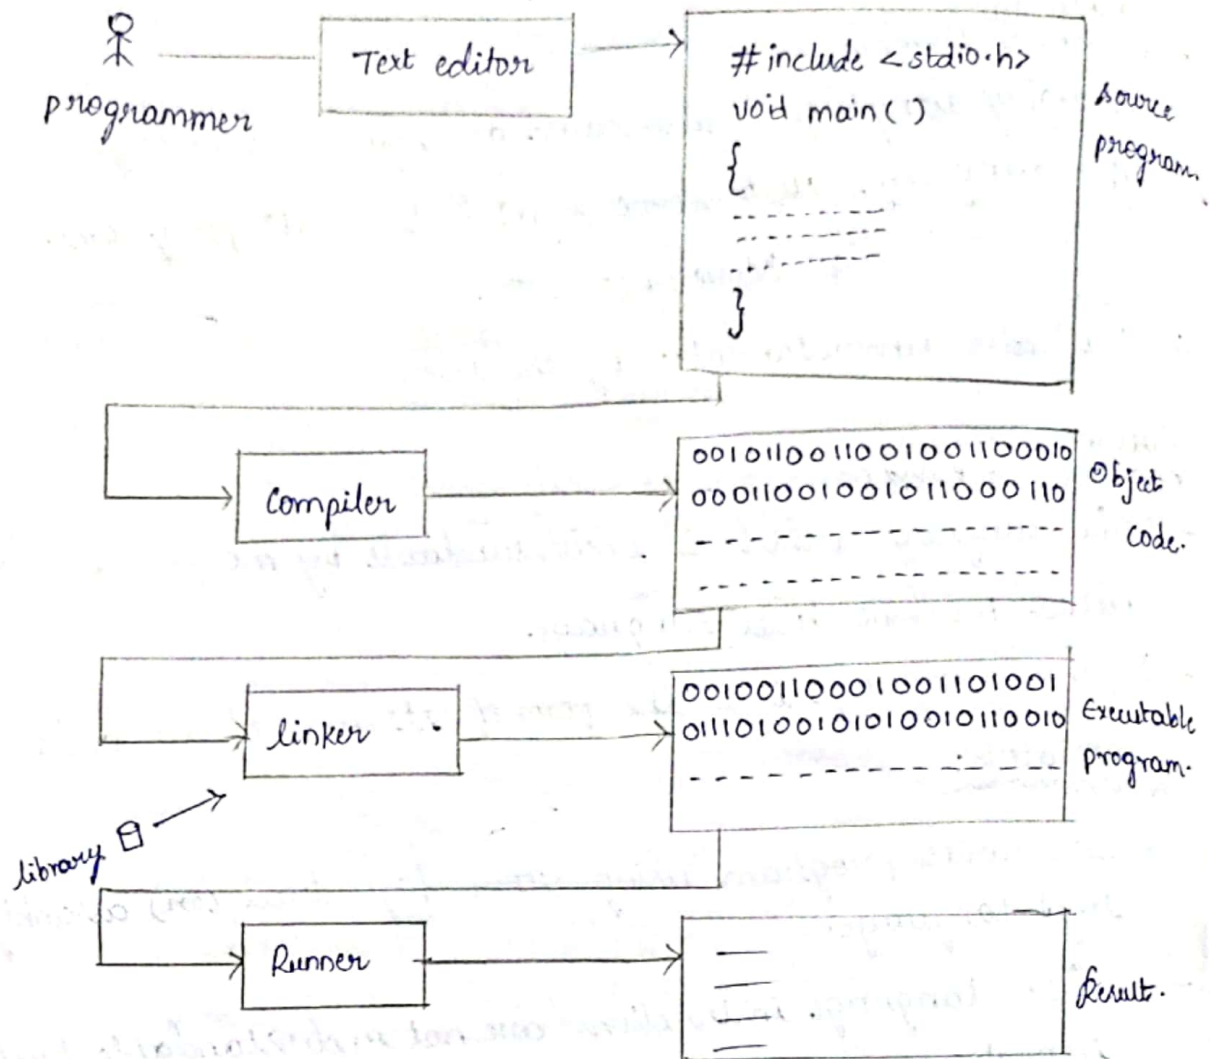 programmer
Text editor
#include <stdio.h>
void main()
{
}
source
program.
Compiler
0010110011001001100010
00011001001011000110
Object
code.
linker
library
00100110001001101001
01110100101010010110010
Executable
program.
Runner
Result.